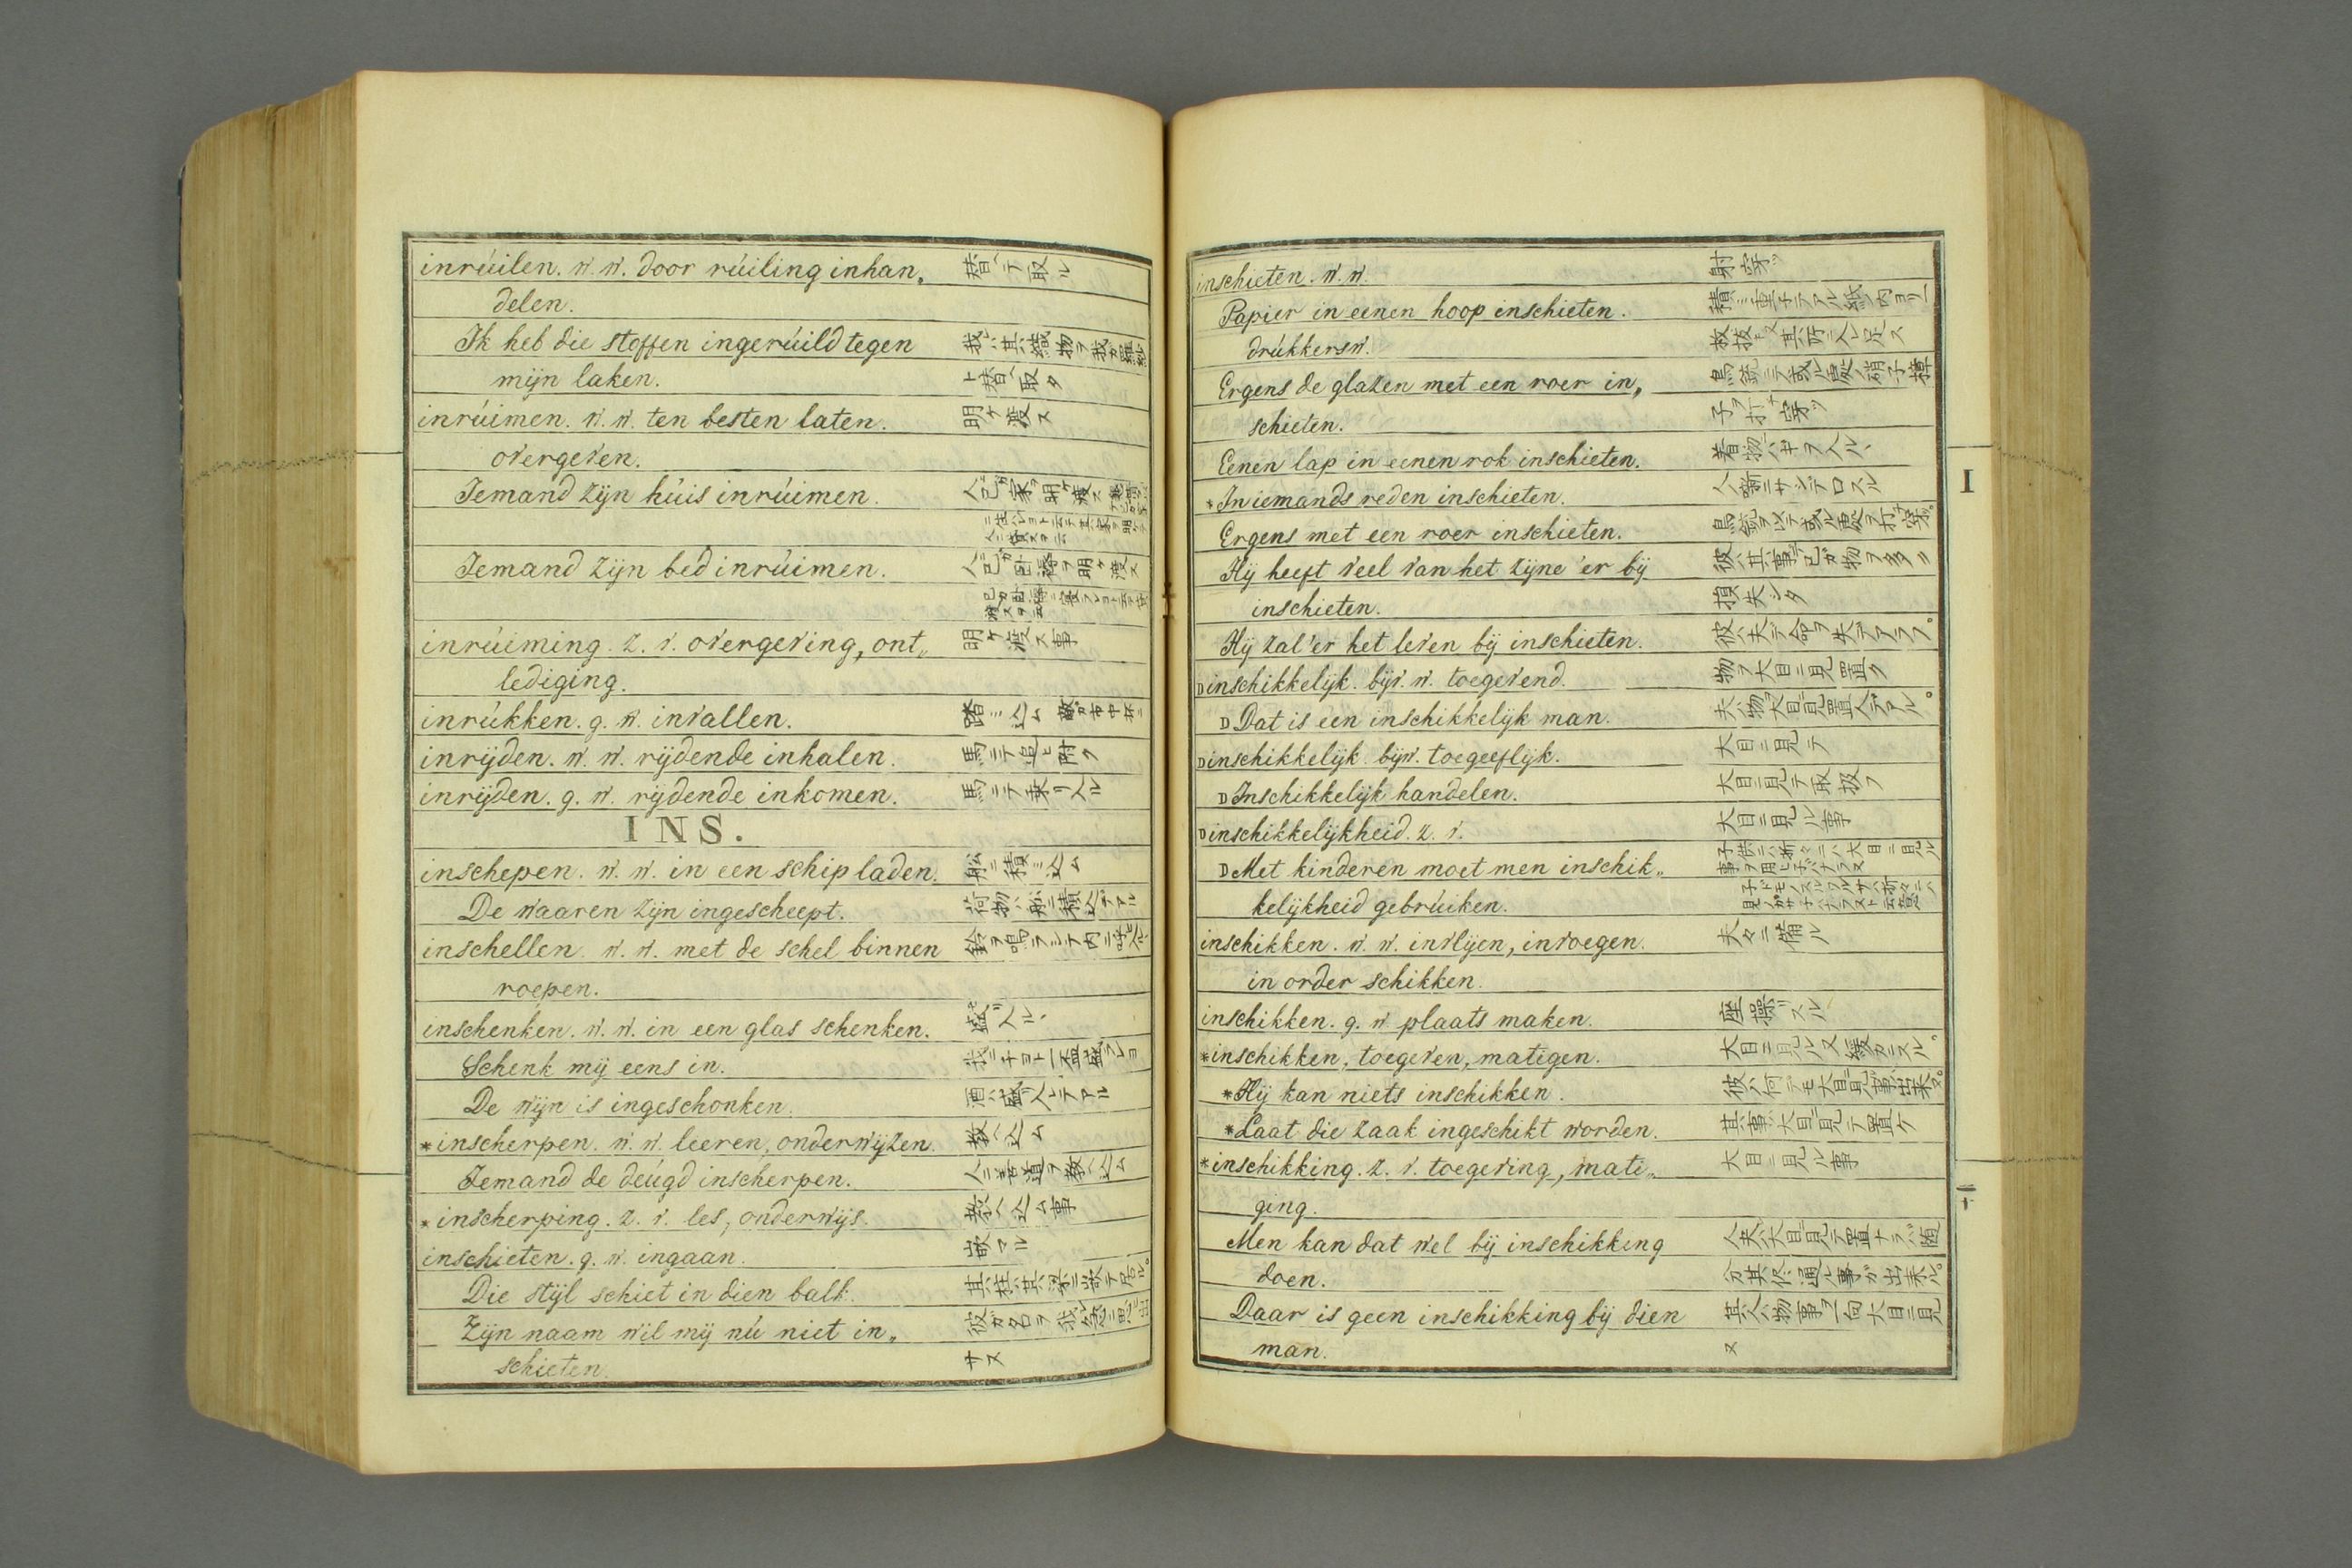 inrúilen. w. w. door rúiling inhan„ 替ヘテ取ル
delen.
Ik heb die stoffen ingerúild tegen 我ハ其織物ヲ我ガ羅紗
mijn laken. ト替ヘ取タ
inrúimen. w. w. ten besten laten. 明ケ渡ス
overgeven.
Iemand zijn húis inrúimen. 人ニ己ガ家ヲ明ケ渡ス
Iemand zijn bed inrúimen. 人ニ己ガ臥褥ヲ明ケ渡ス
inrúiming. z. v. overgeving, ont„ 明ケ渡ス事
lediging.
inrúkken. g. w. invallen. 踏ミ込ム
inrijden. w. w. rijdende inhalen. 馬ニテ追ヒ附ク
inrijden. g. w. rijdende inkomen. 馬ニテ乗リ入ル
INS.
inschepen. w. w. in een schip laden. 船ニ積ミ込ム
De waaren zijn ingescheept. 荷物ハ船ニ積込テアル
inschellen. w. w. met de schel binnen 鈴ヲ鳴ラシテ内ニ呼ヒ入ル
roepen.
inschenken. w. w. in een glas schenken. 盛リ入ル
Schenk mij eens in. 我ニチヨト一盃盛レヨ
De wijn is ingeschonken. 酒ハ盛入レテアル
*inscherpen. w. w. leeren, onderwijzen. 教ヘ込ム
Iemand de deúgd inscherpen. 人ニ善道ヲ教ヘ込ム
*inscherping. z. v. les, onderwijs. 教ヘ込ム事
inschieten. g. w. ingaan. 嵌マル
Die stijl schiet in dien balk. 其柱ハ其梁ニ嵌テ居ル。
Zijn naam wil mij nú niet in„
schieten. サヌ
inschieten. w. w. 射穿ツ
Papier in eenen hoop inschieten.
drúkkersw.
Ergens de glazen met een roer in„ 鳥銃ニテ或ル處ノ硝子障
schieten. 子ヲ打チ穿ツ
Eenen lap in eenen rok inschieten.
*In iemands reden inschieten.
Ergens met een roer inschieten. 鳥銃ヲ以テ或ル處ヲ打チ穿ツ。
Hij heeft veel van het zijne 'er bij 彼ハ其事デ己ガ物ヲ多ク
inschieten. 損失シタ
Hij zal 'er het leven bij inschieten. 彼ハ夫デ命ヲ失フデアラフ。
D inschikkelijk. bijv. w. toegevend. 物ヲ大目ニ見置ク
D Dat is een inschikkelijk man. 夫ハ物ヲ大目ニ見置人デアル。
D inschikkelijk. bijw. toegeeflijk. 大目ニ見テ
D Inschikkelijk handelen. 大目ニ見テ取扱フ
D inschikkelijkheid. z. v. 大目ニ見ル事
D Met kinderen moet men inschik„
kelijkheid gebrúiken.
inschikken. w. w. invlijen, invoegen. 夫々ニ備ル
in order schikken.
inschikken. g. w. plaats maken.
*inschikken, toegeven, matigen. 大目ニ見ル又緩カニスル。
*Hij kan niets inschikken. 彼ハ何デモ大目ニ見ル事ハ出来ヌ。
*Laat die zaak ingeschikt worden. 其事ハ大目ニ見テ置ケ
*inschikking. z. v. toegeving, mati„ 大目ニ見ル事
ging.
Men kan dat wel bij inschikking 人ハ夫ハ大目ニ見テ置ナラバ随
doen.
Daar is geen inschikking bij dien 其人ハ物事ヲ一向大目ニ見
man. ヌ
I